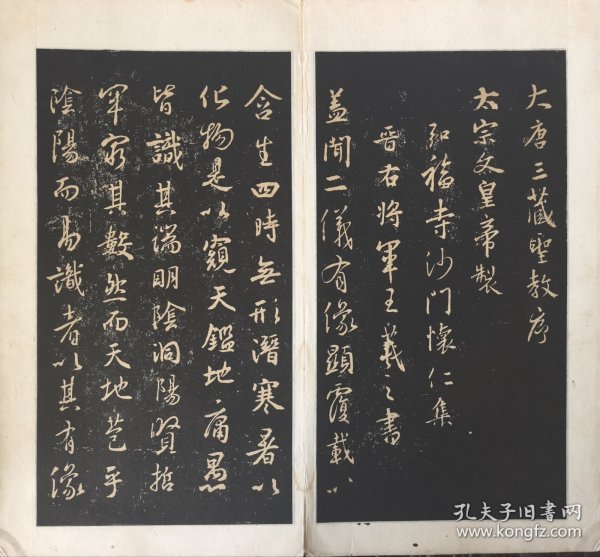 大唐三藏聖教序
太宗文皇帝製
弘福寺沙門懷仁集
晉右將軍王羲之書
盖聞二儀有像顯覆載以
含生四時無形潛寒暑以
化物是以窺天鑑地庸愚
皆識其端明陰洞陽賢哲
罕窮其數然而天地苞乎
陰陽而易識者以其有像
孔夫子旧书网
www.kongfz.com